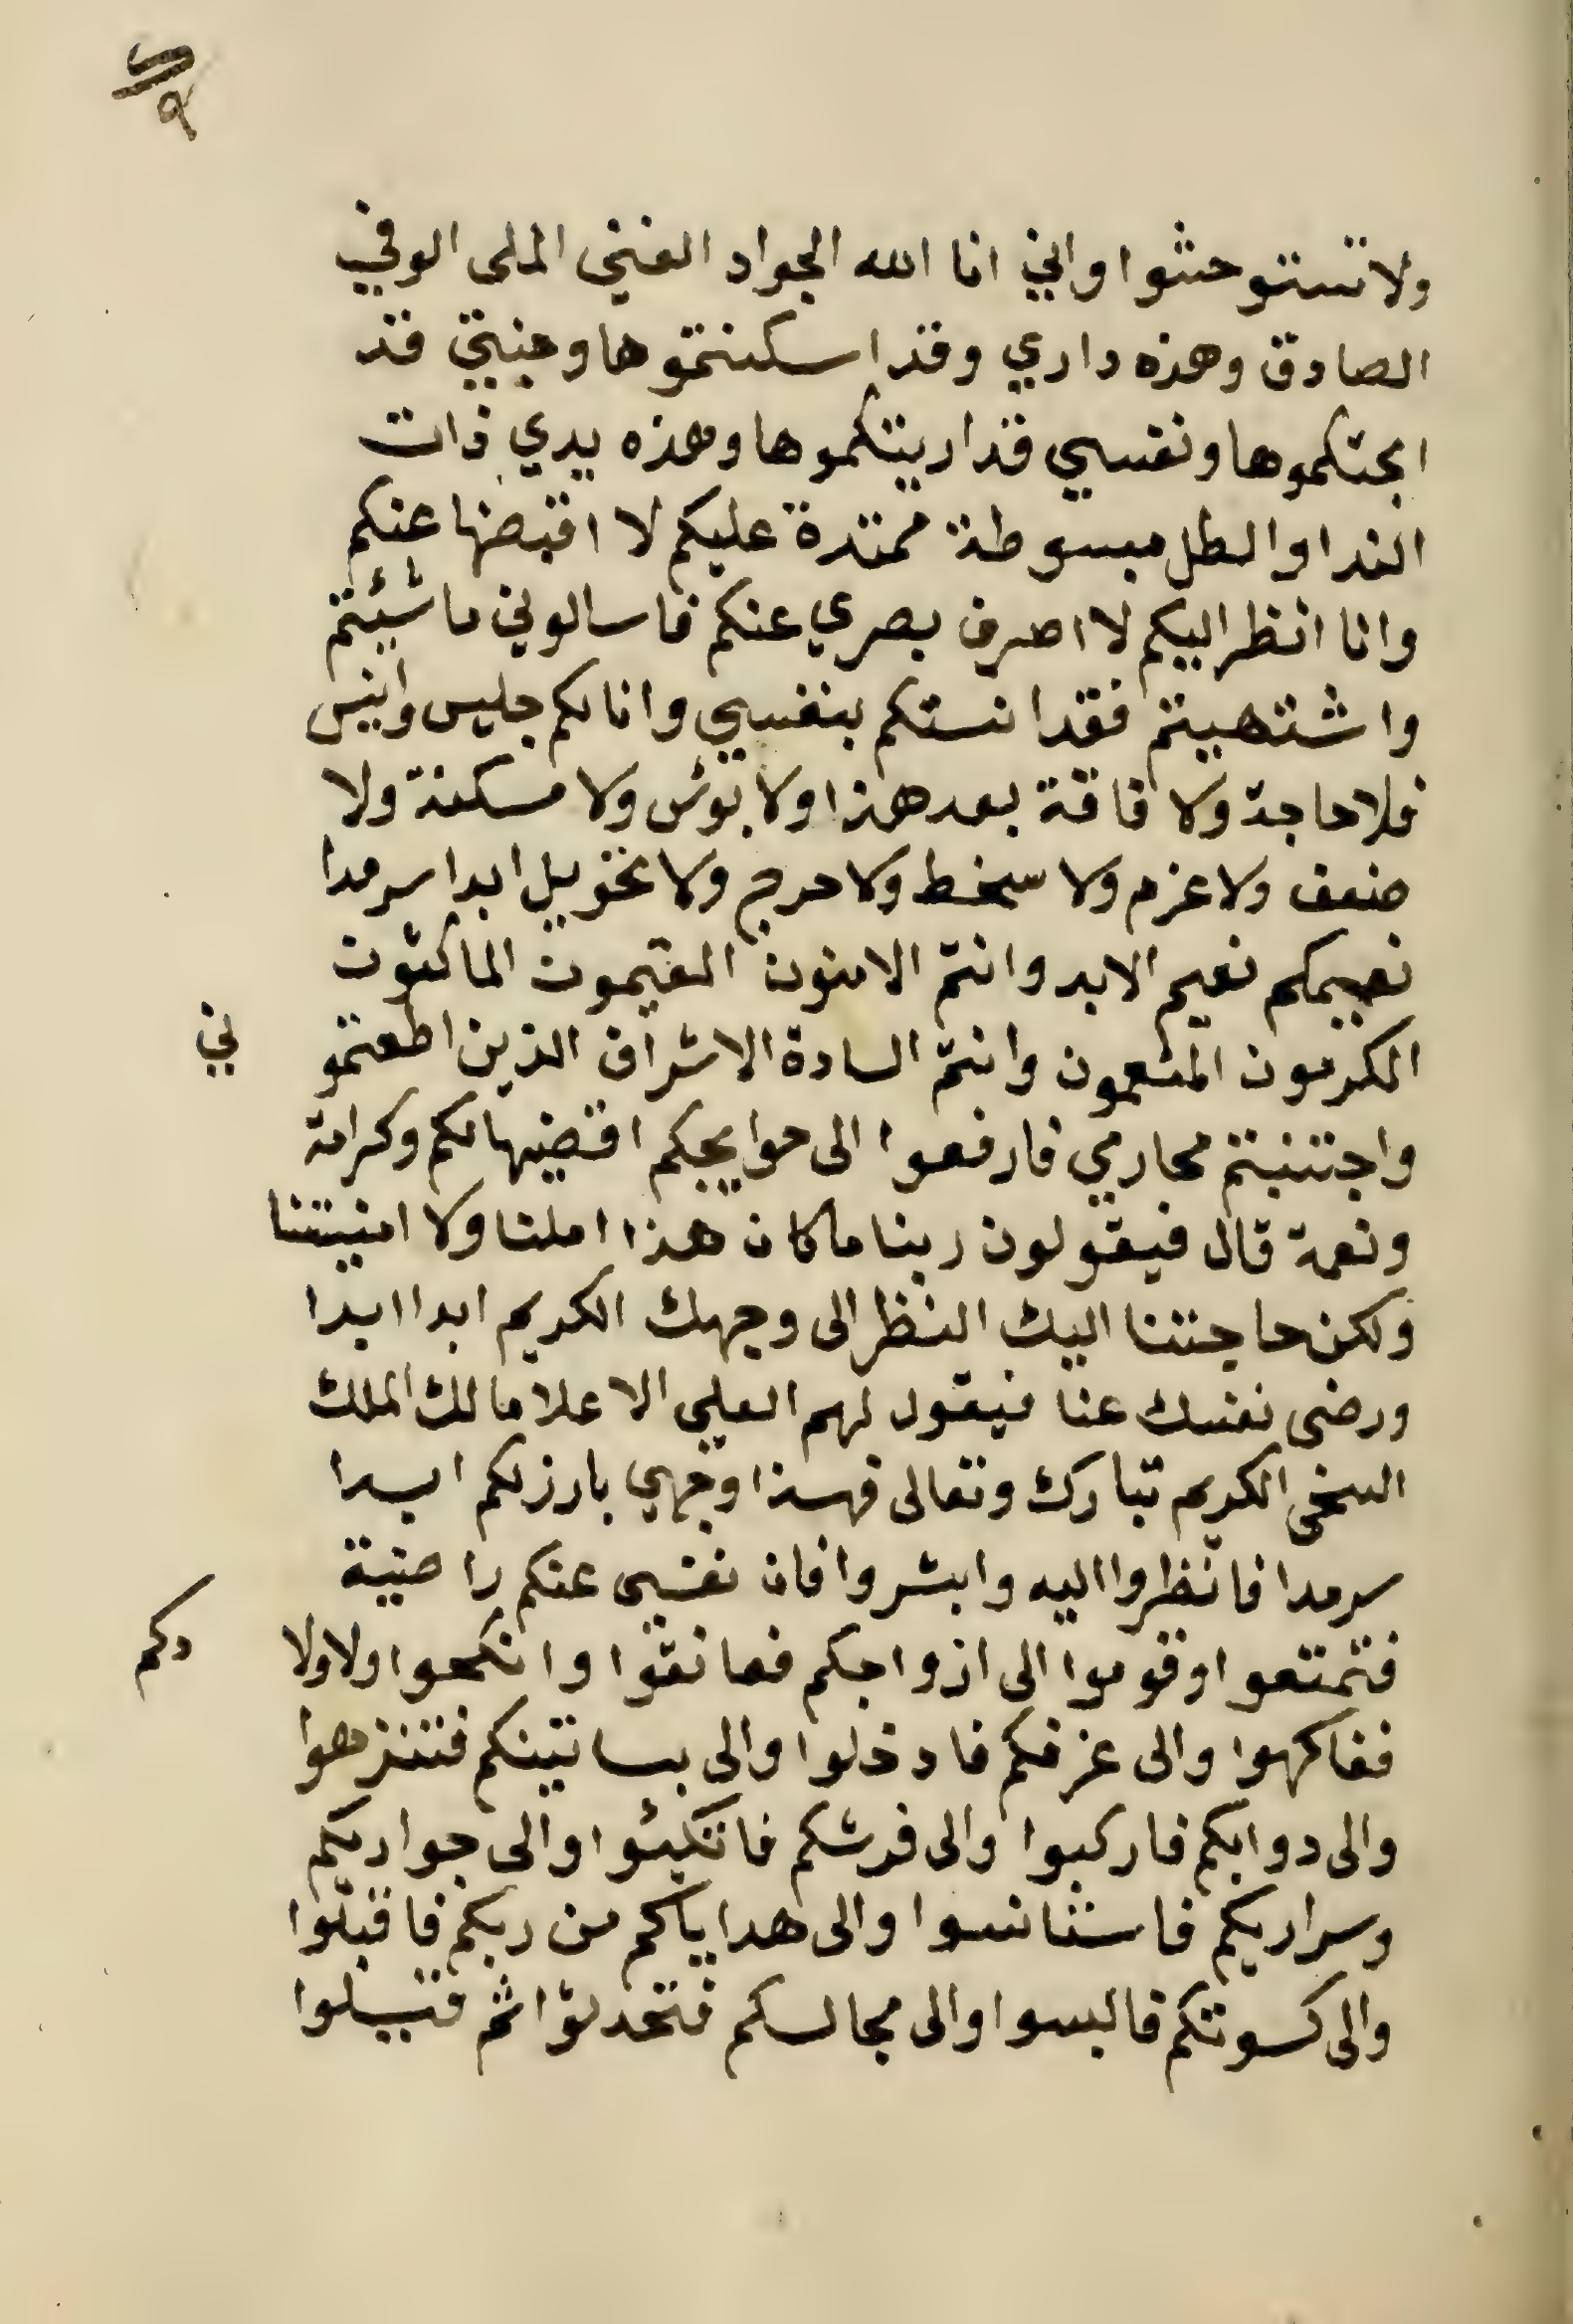 ولا تستوحشوا واني انا الله الجواد الغني الملى الوفي
الصادق وهذه داري وقد اسكنتموها وجنتي قد
ابحتكموها ونفسي قد اريتكموها وهذه يدي ذات
الندا والطل مبسوطة ممتدة عليكم لا اقبضها عنكم
وانا انظر اليكم لا اصرف بصري عنكم فاسالوني ما شيئتم
واشتهيتم فقد انستكم بنفسي وانا لكم جليس وانيس
فلا حاجة ولا فاقة بعد هذا ولا بوئس ولا مسكنة ولا
ضعف ولا عزم ولا سخط ولا حرج ولا تحويل ابدا سرمدا
نعيمكم نعيم الابد وانتم الامنون المقيمون الماكثون
المكرمون المنعمون وانتم السادة الاشراف الذين اطعتمو ني
واجتنبتم محارمي فارفعوا الى حوايجكم اقضيها لكم وكرامة
ونعمة قال فيقولون ربنا ما كان هذا املنا ولا امنيتنا
ولكن حاجتنا اليك النظر الى وجهك الكريم ابدا ابدا
ورضى نفسك عنا فيقول لهم العلي الاعلا مالك الملك
السخي الكريم تبارك وتعالى فهذا وجهي بارز لكم ابدا
سرمدا فانظروا اليه وابشروا فان نفسي عنكم راضية
فتمتعوا وقوموا الى ازواجكم فعانقوا وانكحوا ولاولا دكم
ففاكهوا والى غرفكم فادخلوا والى بساتينكم فتنزهوا
والى دوابكم فاركبوا والى فرشكم فاتكيئوا والى جواريكم
وسراريكم فاستانسوا والى هداياكم من ربكم فاقبلوا
والى كسوتكم فالبسوا والى مجالسكم فتحدثوا ثم قيلوا